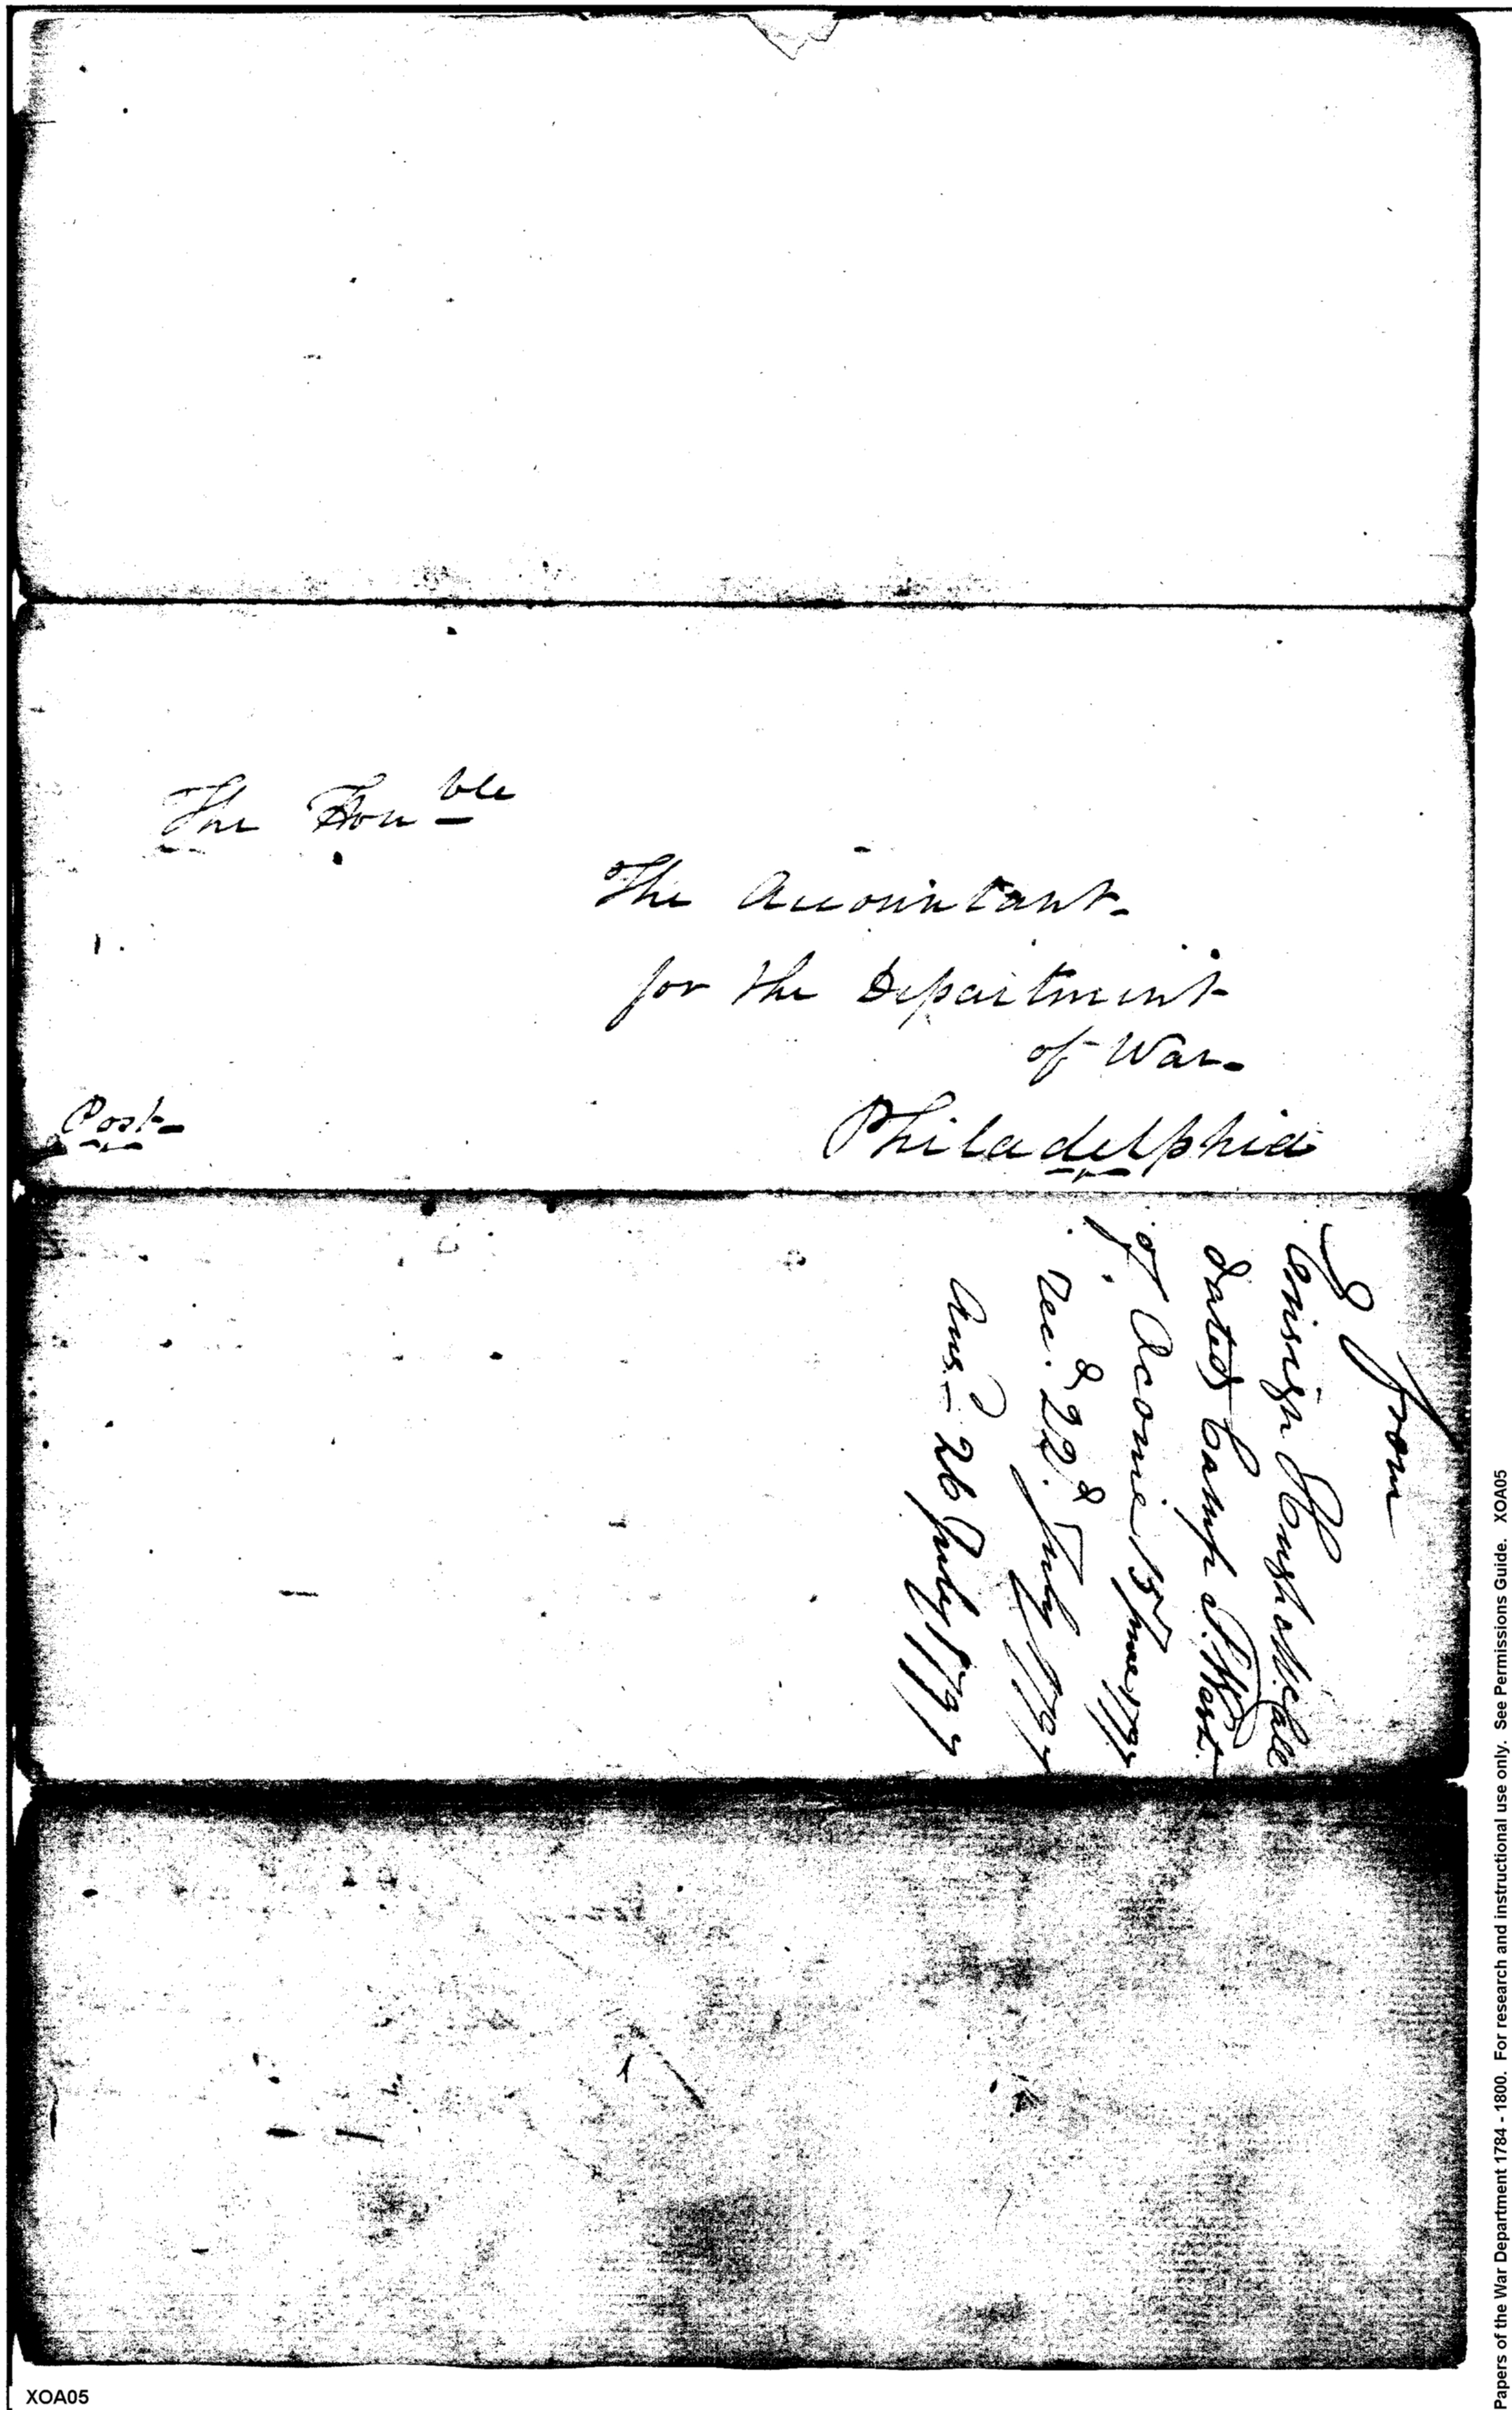 The Hon ble
The Accountant
for the Department
of War
Post
Philadelphia
from
Ensign Hugh McCall
dated Camp
of Oconie 15 June 1797
Rec.d 22d. July 1797
Ans.d 26 July 1797
Papers of the War Department 1784 - 1800. For research and instructional use only. See Permissions Guide. XOA05
XOA05